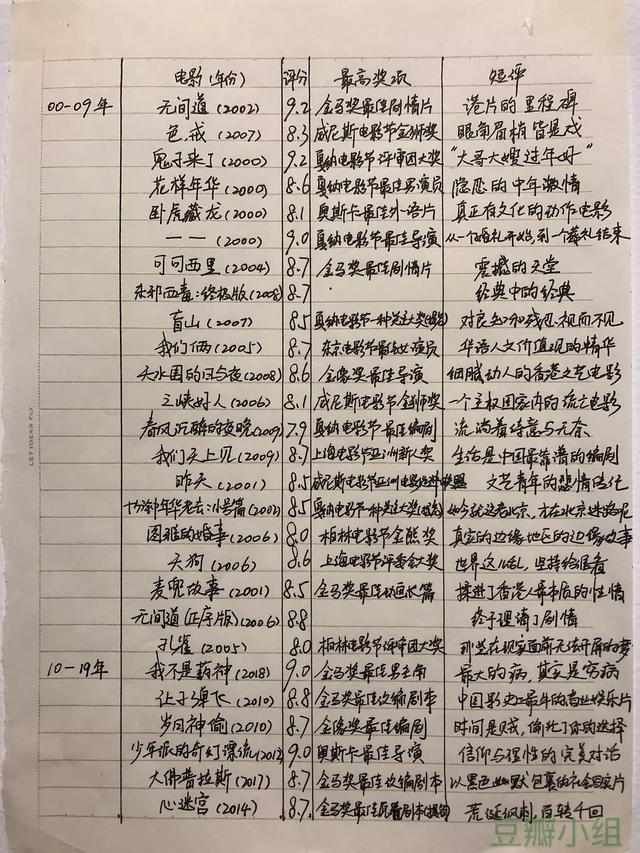 电影(年份) 评分 最高奖项 短评
00-09年 无间道(2002) 9.2 金马奖最佳剧情片 港片的里程碑
色戒(2007) 8.3 威尼斯电影节金狮奖 眼角眉梢皆是戏
鬼子来了(2000) 9.2 戛纳电影节评审团大奖 "大哥大嫂过年好"
花样年华(2000) 8.6 戛纳电影节最佳男演员 隐忍的中年激情
卧虎藏龙(2000) 8.1 奥斯卡最佳外语片 真正有文化的动作电影
一一(2000) 9.0 戛纳电影节最佳导演 从一个婚礼开始到一个葬礼结束
可可西里(2004) 8.7 金马奖最佳剧情片 震撼的天堂
东邪西毒:终极版(2008) 8.7 经典中的经典
盲山(2007) 8.5 戛纳电影节一种关注大奖(提名) 对良知的残忍视而不见
我们俩(2005) 8.7 东京电影节最佳女演员 华语人文价值观的精华
天水围的日与夜(2008) 8.6 金像奖最佳导演 细腻动人的香港文艺电影
三峡好人(2006) 8.1 威尼斯电影节金狮奖 一个主权国家内的流亡电影
春风沉醉的夜晚(2009) 7.9 戛纳电影节最佳编剧 流淌着诗意与无奈
我们天上见(2009) 8.7 上海电影节亚洲新人奖 生活是中国最靠谱的编剧
昨天(2001) 8.5 威尼斯电影节亚洲电影促进联盟 文艺青年的悲情路化
十分钟年华老去:小号篇(2002) 8.5 戛纳电影节一种关注大奖(提名) 如今就这看北京,才在北京迷路呢
图雅的婚事(2006) 8.0 柏林电影节金熊奖 真实的边缘地区的边缘故事
天狗(2006) 8.6 上海电影节评委会大奖 世界这么乱,坚持给谁看
麦兜故事(2001) 8.5 金马奖最佳动画长篇 揉进了香港人最本质的性情
无间道(正序版)(2006) 8.8 终于理清了剧情
孔雀(2005) 8.0 柏林电影节评审团大奖 那些在现实面前无法开屏的梦
10-19年 我不是药神(2018) 9.0 金马奖最佳男主角 最大的病,其实是穷病
让子弹飞(2010) 8.8 金马奖最佳改编剧本 中国影史上最牛的商业娱乐片
岁月神偷(2010) 8.7 金像奖最佳编剧 时间是贼,偷光了你的选择
少年派的奇幻漂流(2012) 9.0 奥斯卡最佳导演 信仰与理性的完美对话
大佛普拉斯(2017) 8.7 金马奖最佳改编剧本 以黑色幽默包裹的社会写实片
心迷宫(2014) 8.7 金马奖最佳原著剧本(提名) 荒诞讽刺,百转千回
LEYIDEAR FLY
豆瓣小组